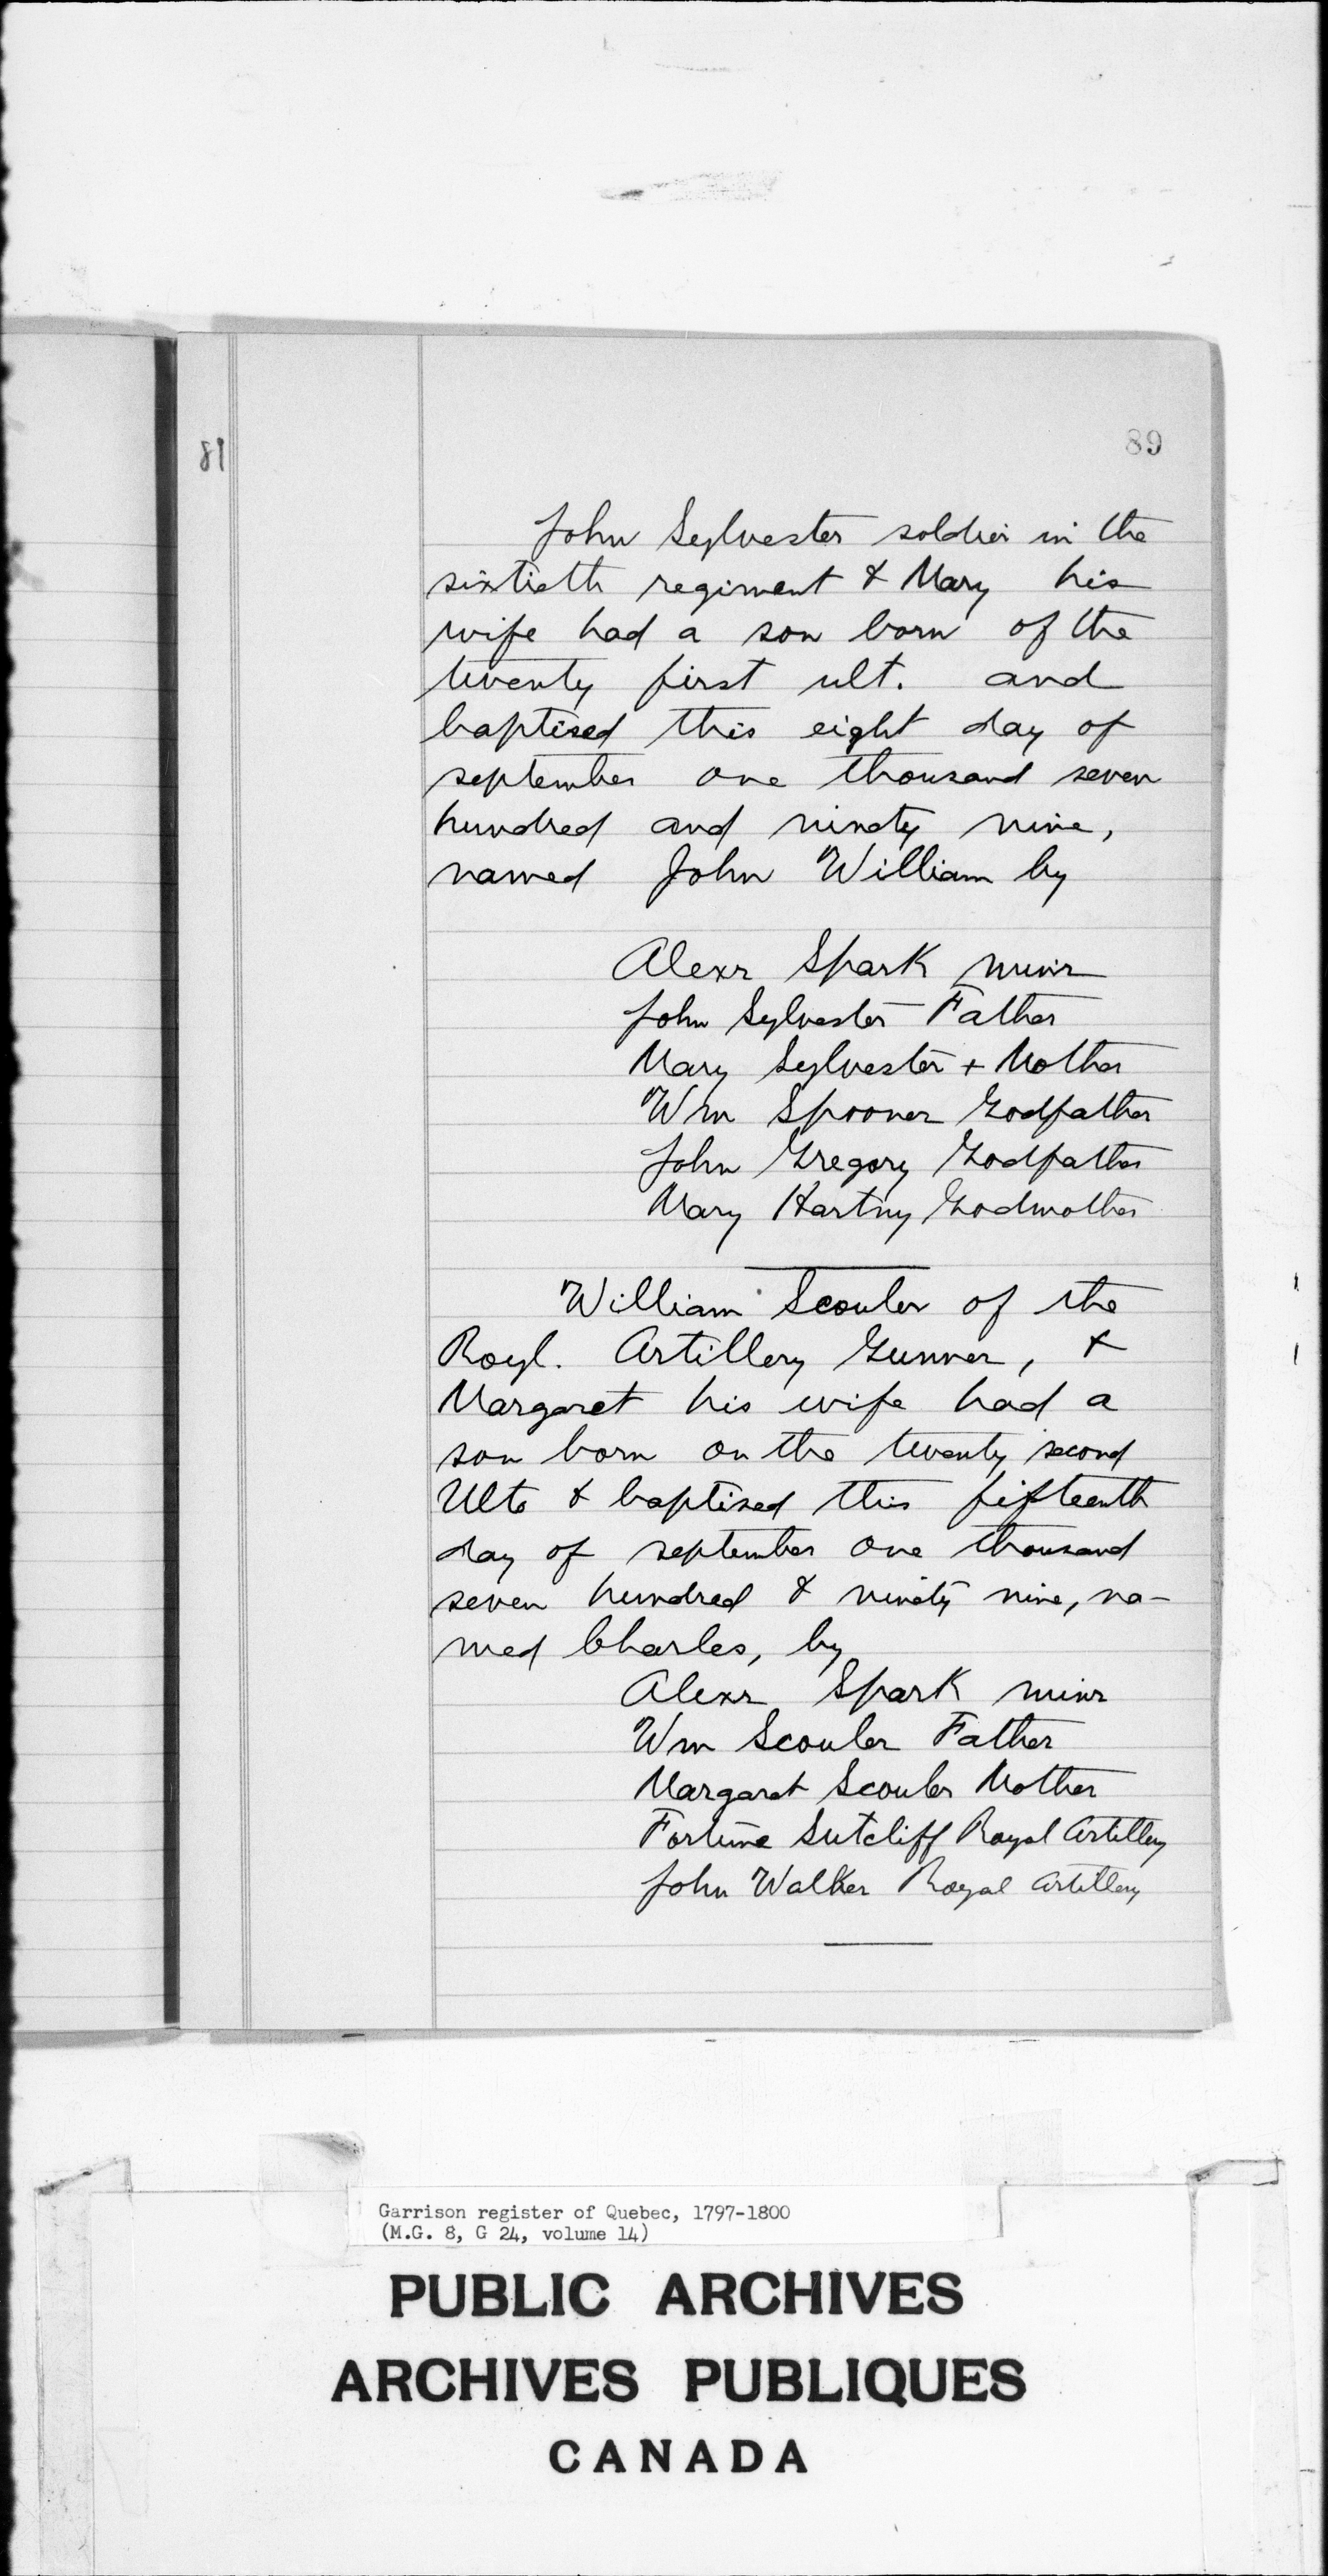 89
81
John Sylvester soldier in the
sixtieth regiment & Mary his
wife had a son born of the
twenty first ult. and
baptised this eight day of
september one thousand seven
hundred and ninety nine,
named John William by
Alexr Spark minr
John Sylvester Father
Mary Sylvester + Mother
Wm Spooner Godfather
John Gregory Godfather
Mary Hartny Godmother
William Scouler of the
Royl. Artillery Gunner, &
Margaret his wife had a
son born on the twenty second
Ulto & baptised this fifteenth
day of september one thousand
seven hundred & ninety nine, na-
med Charles, by
Alexr Spark minr
Wm Scouler Father
Margaret Scouler Mother
Fortune Sutcliff Royal Artillery
John Walker Royal Artillery
Garrison register of Quebec, 1797-1800
(M.G. 8, G 24, volume 14)
PUBLIC ARCHIVES
ARCHIVES PUBLIQUES
CANADA